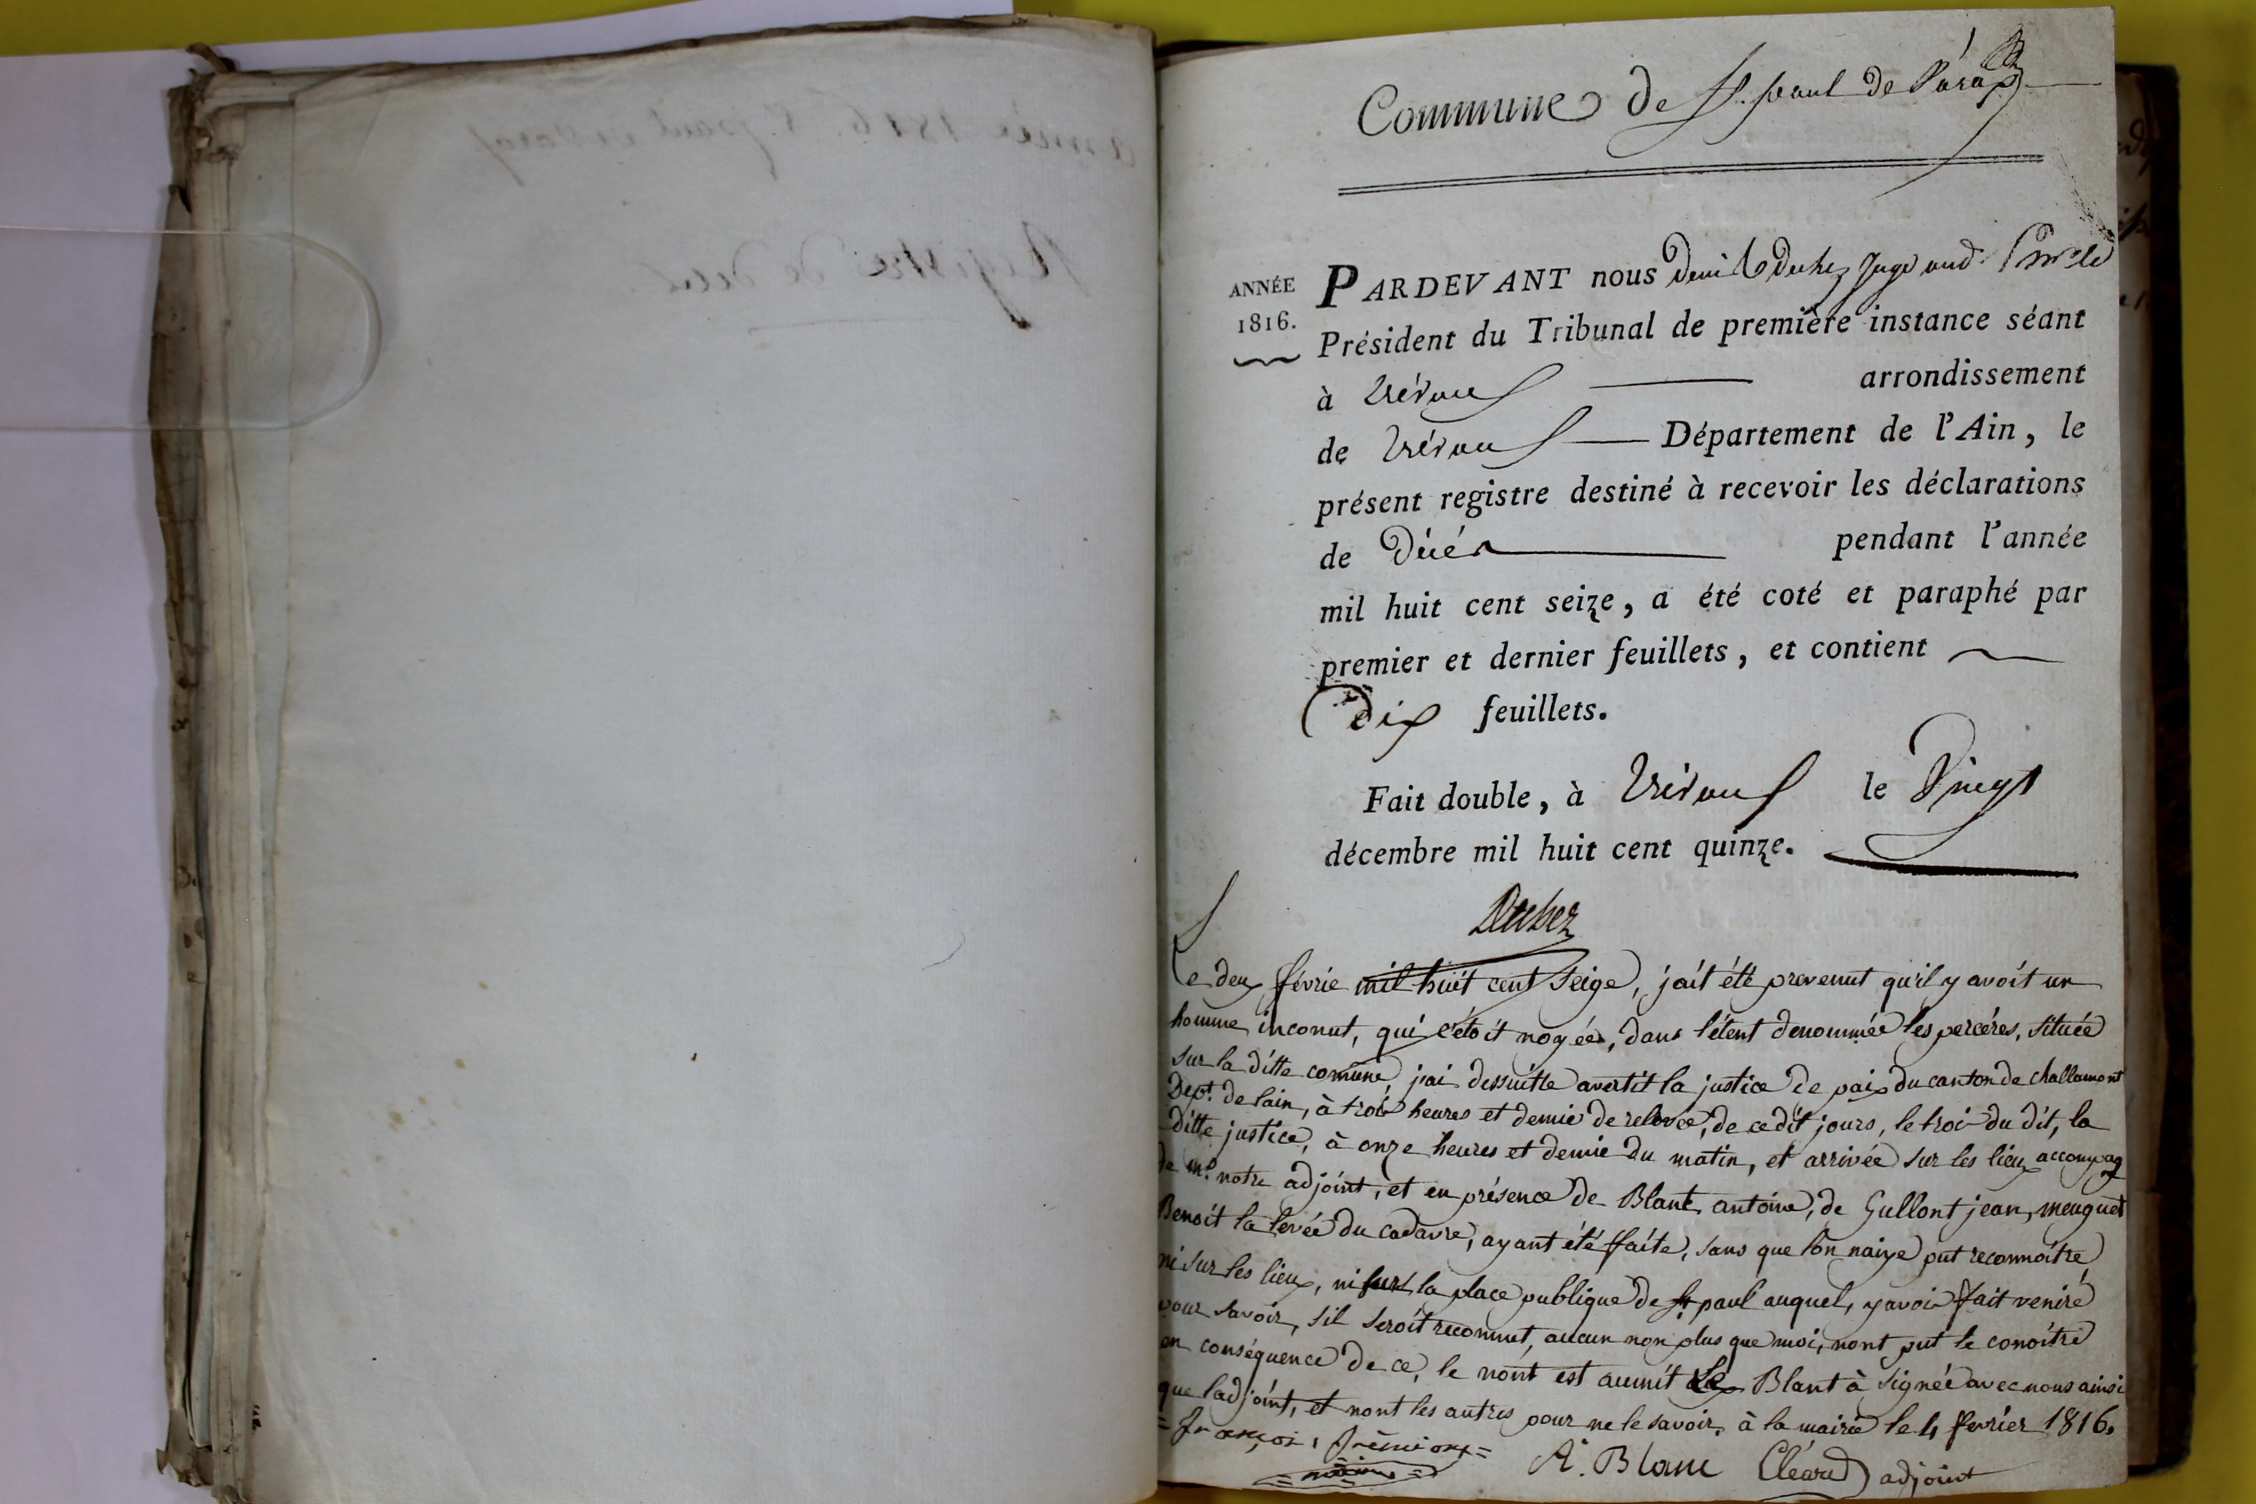 Commune de St. paul de Varax
ANNÉE
1816.
PARDEVANT nous Duchez juge
Président du Tribunal de première instance séant
à Trévoux arrondissement
de Trévoux Département de l'Ain, le
présent registre destiné à recevoir les déclarations
de Décés pendant l'année
mil huit cent seize, a été coté et paraphé par
premier et dernier feuillets, et contient
Dix feuillets.
Fait double, à Trévoux le Vingt
décembre mil huit cent quinze.
Duchez
Le deux févrie mil huit cent seize, jait été prevenut qu'il y avoit un
homme inconut, qui c'étoit noyée, dans l'étent denommée les percéres, située
sur la ditte comune, j'ai dessuitte avertit la justice de paix du canton de challamont
Dept. de lain, à troix heures et demie de relevée, de ce dit jours, le troi du dit, la
ditte justice, à onze heures et demie du matin, et arrivée sur les lieux accompag
de mr. notre adjoint, et en présence de Blant antoine, de Gullont jean, meuguet
Benoit la levée du cadavre, ayant été faite, sans que l'on naiye put reconnoitre
ni sur les lieux, ni sur la place publique de St paul auquel, y avoir fait veniré
pour savoir, s'il seroit reconnut, aucun non plus que moi, nont put le conoitre
en conséquence de ce, le nont est aumit Le Blant à signée avec nous ainsi
que ladjoint, et nont les autres pour ne le savoir, à la mairie le 4 fevrier 1816.
A. Blanc Cléard adjoint
année 1816. St. paul de Varax
Registre de décès